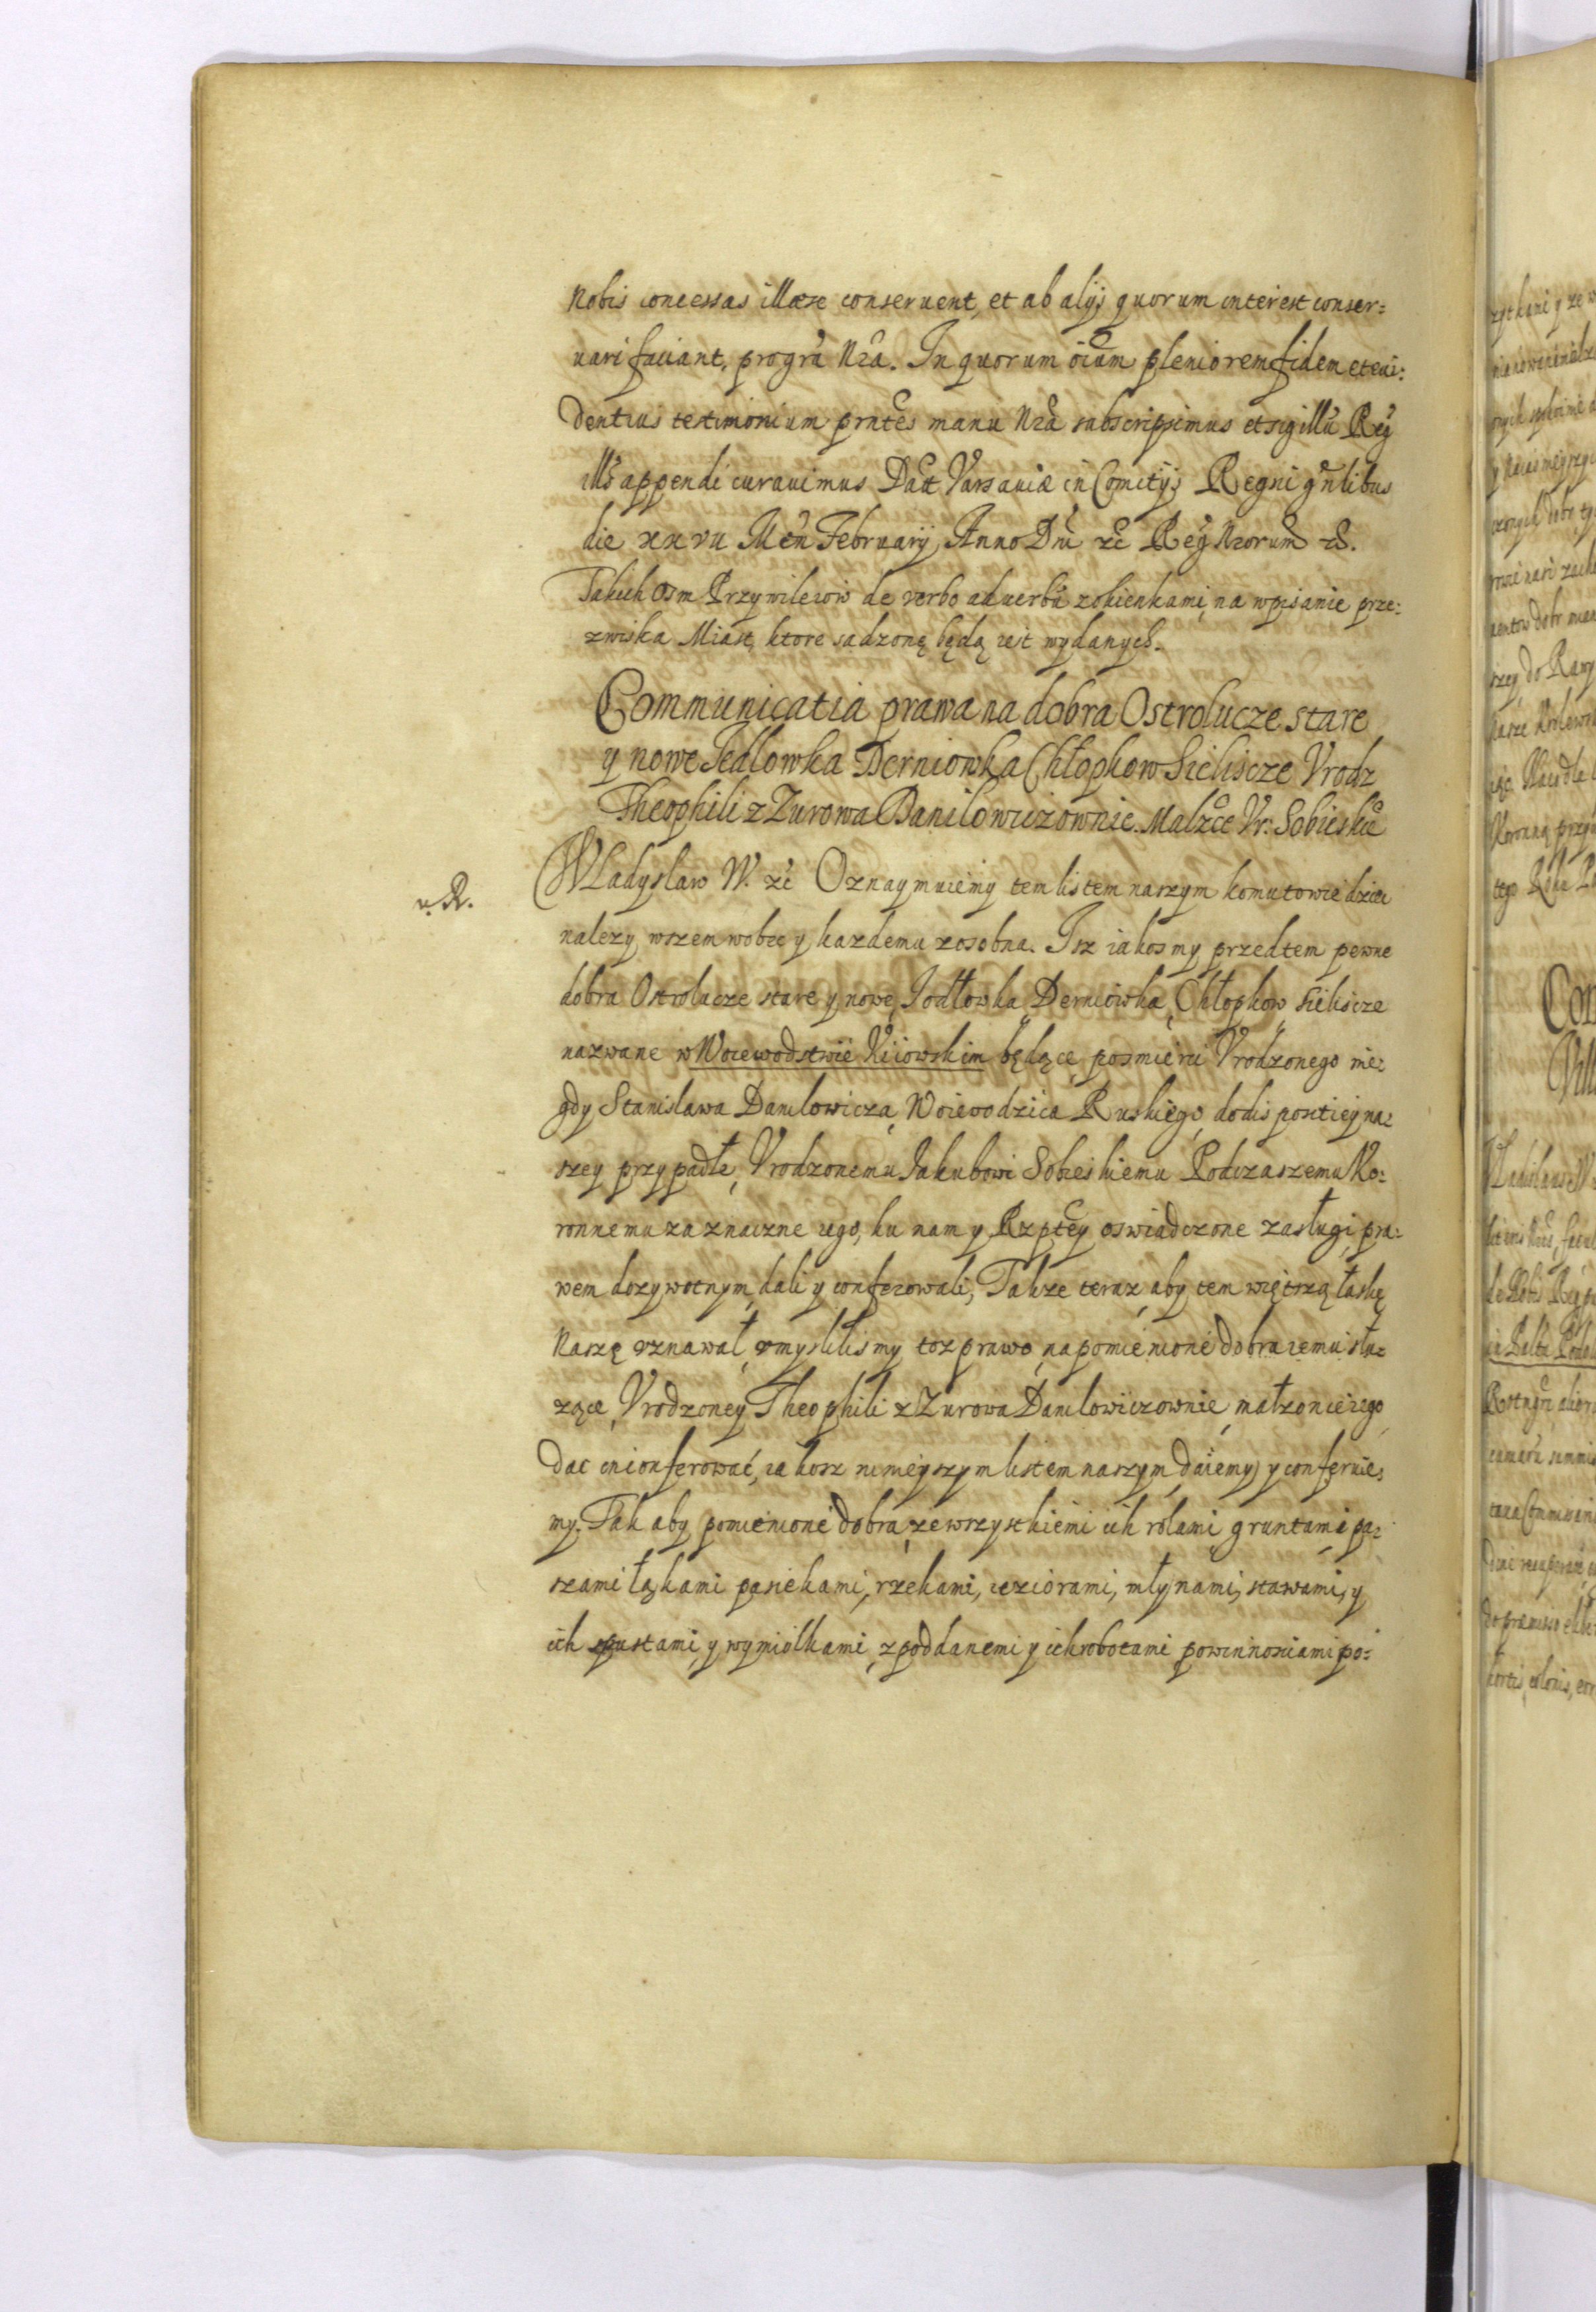 nobis concessas illæse conseruent, et ab alijs quorum interest conser=
uari faciant, pro grã Nrã. In quorum oium pleniorem fidem et eui=
dentius testimonium prntes manu Nrã subscripsimus et sigillũ Reg
illis appendi curauimus Datt Varsauiæ in Comitijs Regni gñlibus
die xxvii Mẽn February Anno Dñi zc Reg Nrorum zc.
Takich osm Przywileiow de verbo ad uerbũ z okienkami na wpisanie prze=
zwiska Miast, ktore sadzonę będą iest wydanych.
Communicatia prawa na dobra Ostrolucze stare
y nowe Jedlowka Derniowka Chłopkow Sieliscze Vrodz
Theophili z Zurowa Danilowiczownie. Malzce Vr: Sobieskie
u. R.
Wladyslaw IV. zc Oznaymuiemy tem listem naszym komu to wiedziec
nalezy wszem wobec y kazdemu zosobna. Isz iakosmy przedtem pewne
dobra Ostrolucze stare y nowe, Jodłowka, Derniowka, Chłopkow Sieliscze
nazwane w Woiewodstwie Kiiowskim będące, po smierci Vrodzonego nie=
gdy Stanislawa Danilowicza, Woiewodzica Ruskiego, do dispositiej na=
szey przypadłe, Vrodzonemu Jakubowi Sobieskiemu Podczaszemu Ko=
ronnemu za znaczne iego, ku nam y Rzptey oswiadczone zasługi, pra=
wem dozywotnym, dali y conferowali, Takze teraz, aby tem więtszą łaskę
Naszę vznawał, vmyslilismy toz prawo, na pomienione dobra iemu słu=
zące, Vrodzoney Theophili z Zurowa Danilowiczownie, małzonce iego,
dac i conferować, iakosz ninieyszym listem naszym, daiemy, y conferuie=
my. Tak aby pomienione dobra, ze wszystkiemi ich rolami, gruntami, pa=
szami łąkami pasiekami, rzekami, ieziorami, młynami, stawami, y
ich spustami, y wymiołkami, z poddanemi y ich robotami powinnosciami po=